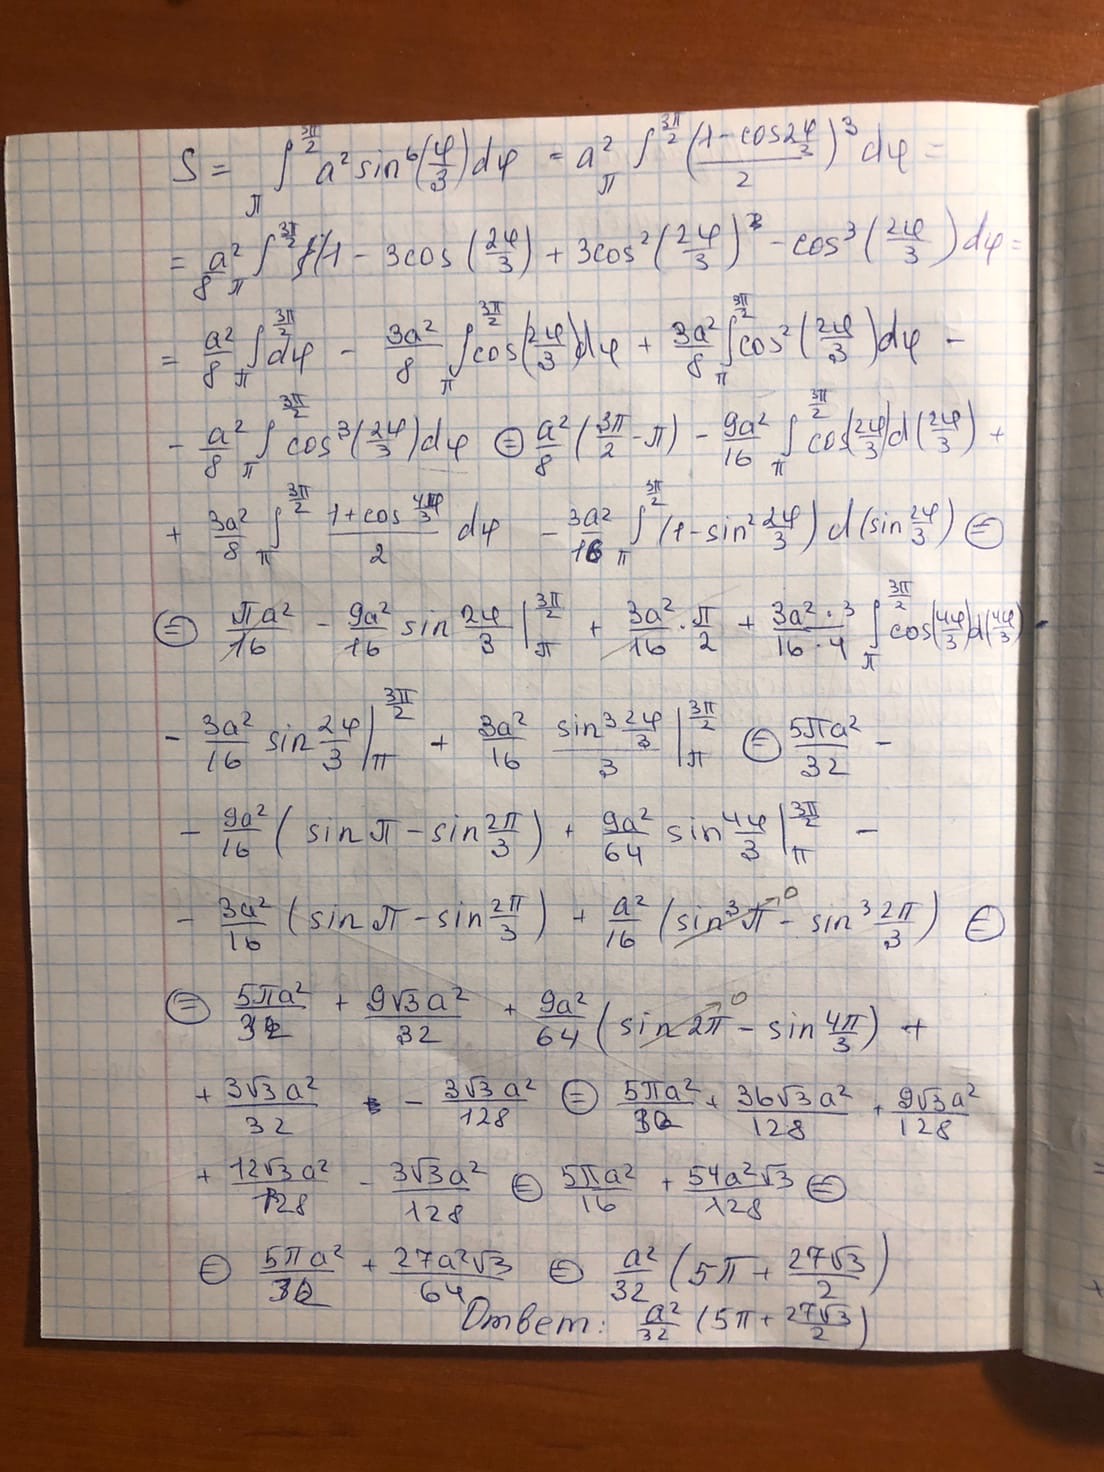 S = ∫_π^{3π/2} a² sin⁶(φ/3) dφ = a² ∫_π^{3π/2} ((1 - cos 2φ/3)/2)³ dφ =
= a²/8 ∫_π^{3π/2} (1 - 3cos(2φ/3) + 3cos²(2φ/3) - cos³(2φ/3)) dφ =
= a²/8 ∫_π^{3π/2} dφ - 3a²/8 ∫_π^{3π/2} cos(2φ/3) dφ + 3a²/8 ∫_π^{3π/2} cos²(2φ/3) dφ -
- a²/8 ∫_π^{3π/2} cos³(2φ/3) dφ ⊜ a²/8 (3π/2 - π) - 9a²/16 ∫_π^{3π/2} cos(2φ/3) d(2φ/3) +
+ 3a²/8 ∫_π^{3π/2} (1 + cos 4φ/3)/2 dφ - 3a²/16 ∫_π^{3π/2} (1 - sin² 2φ/3) d(sin 2φ/3) ⊜
⊜ πa²/16 - 9a²/16 sin 2φ/3 |_π^{3π/2} + 3a²/16 · π/2 + 3a²·3/16·4 ∫_π^{3π/2} cos(4φ/3) d(4φ/3) -
- 3a²/16 sin 2φ/3 |_π^{3π/2} + 3a²/16 sin³ 2φ/3 / 3 |_π^{3π/2} ⊜ 5πa²/32 -
- 9a²/16 (sin π - sin 2π/3) + 9a²/64 sin 4φ/3 |_π^{3π/2} -
- 3a²/16 (sin π - sin 2π/3) + a²/16 (sin³ π →0 - sin³ 2π/3) ⊜
⊜ 5πa²/32 + 9√3a²/32 + 9a²/64 (sin 2π →0 - sin 4π/3) +
+ 3√3a²/32 - 3√3a²/128 ⊜ 5πa²/32 + 36√3a²/128 + 9√3a²/128
+ 12√3a²/128 - 3√3a²/128 ⊜ 5πa²/16 + 54a²√3/128 ⊜
⊜ 5πa²/32 + 27a²√3/64 ⊜ a²/32 (5π + 27√3/2)
Ответ: a²/32 (5π + 27√3/2)